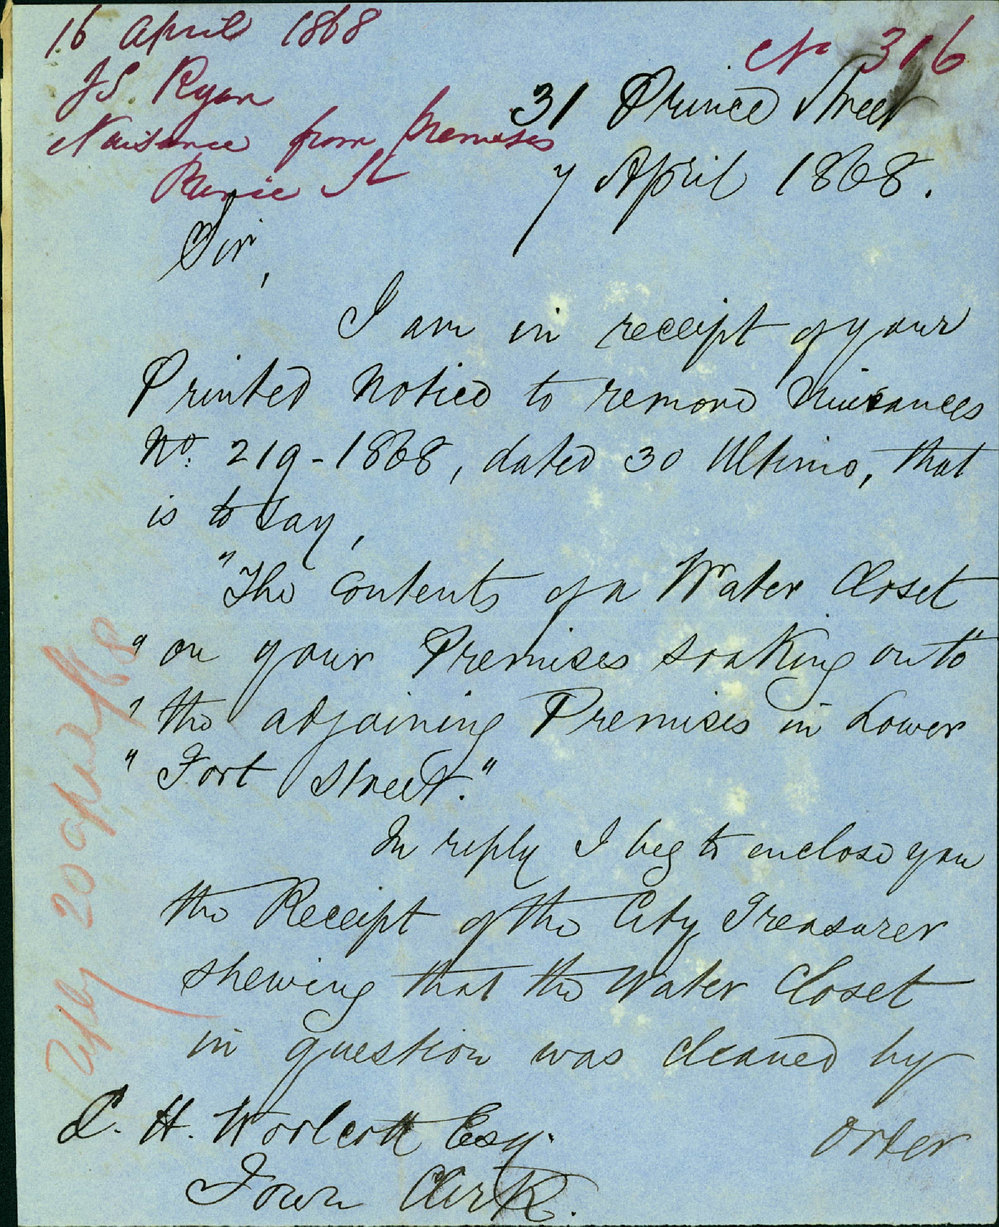 16 April 1868
JS Ryan
Nuisance from premises
Prince St
No 316
31 Prince Street
7 April 1868.
Sir,
I am in receipt of your
Printed Notice to remove Nuisances
No. 219-1868, dated 30 Ultimo, that
is to say,
"The Contents of a Water Closet
" on your Premises soaking onto
" the adjoining Premises in Lower
" Fort Street."
In reply I beg to enclose you
the Receipt of the City Treasurer
shewing that the Water Closet
in question was cleaned by
order
C. H. Woolcott Esq.
Town Clerk.
Reply 20 April /68